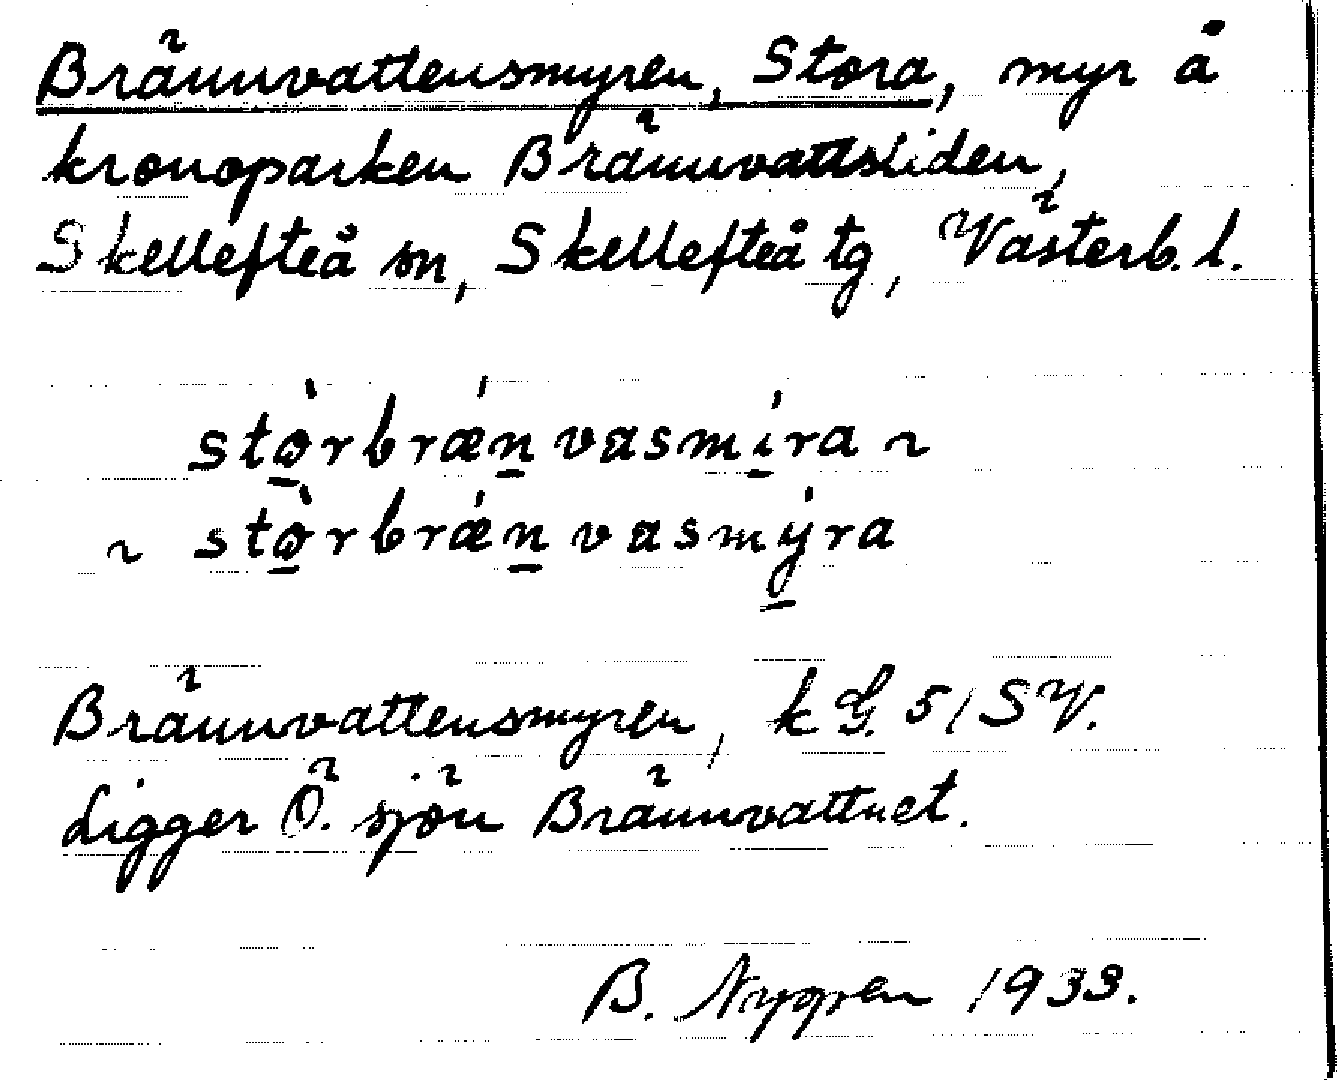 Brännvattensmyren, Stora, myr å
kronoparken Brännvattsliden,
Skellefteå sn, Skellefteå tg, Västerb. l.
stò̱rbrǽṉvasmí̱ra ~
~ stò̱rbrǽṉvasmý̱ra
Brännvattensmyren, k G. 5/SV.
Ligger Ö. sjön Brännvattnet.
B. Nygren 1933.